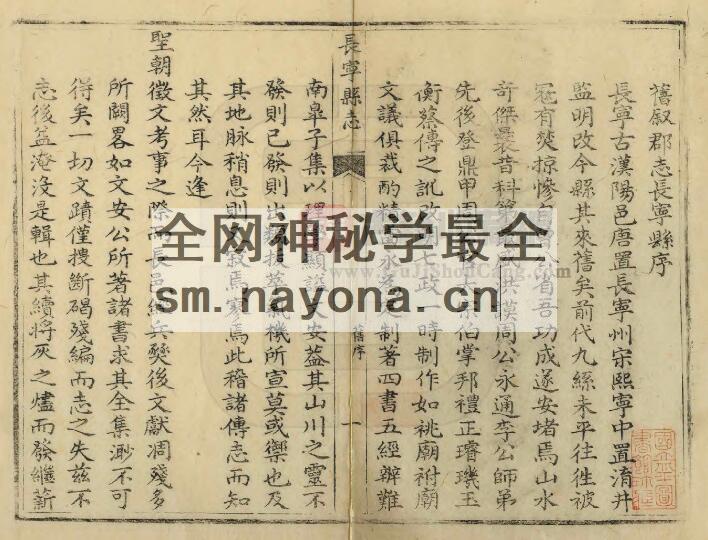 舊叙郡志長寧縣序
長寧古漢陽邑唐置長寧州宋熙寧中置淯井
監明改今縣其來舊矣前代九絲未平往往被
冦有焚掠慘
吾功成遂安堵焉山水
竒傑曩昔科第
洪漢周公永通李公師弟
先後登鼎甲周
宗伯掌邦禮正璿璣玉
衡蔡傳之訛改
七政一時制作如祧廟祔廟
文議俱裁酌精
永為定制著四書五經辦難
長寧縣志
舊序
一
南臯子集以理學顯謚文安葢其山川之靈不
發則已發則出
機所宣莫或禦也及
其地脉稍息則
焉寂焉此稽諸傳志而知
其然耳今逢
聖朝徵文考事之際而長邑經兵燹後文獻凋殘多
所闕畧如文安公所著諸書求其全集渺不可
得矣一切文蹟僅捜斷碣殘編而志之失兹不
志後益淹没是輯也其續將灰之燼而發繼薪
全网神秘学最全
sm.nayona.cn